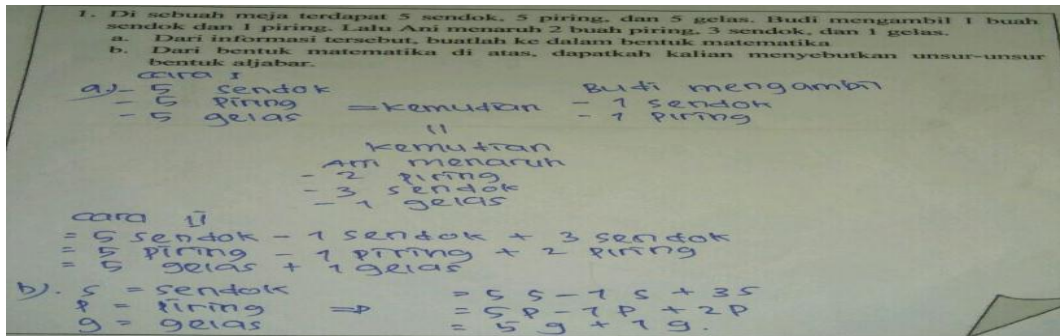 1. Di sebuah meja terdapat 5 sendok, 5 piring, dan 5 gelas. Budi mengambil 1 buah
sendok dan 1 piring. Lalu Ani menaruh 2 buah piring, 3 sendok, dan 1 gelas.
a. Dari informasi tersebut, buatlah ke dalam bentuk matematika
b. Dari bentuk matematika di atas, dapatkah kalian menyebutkan unsur-unsur
bentuk aljabar.
cara I
a) - 5 sendok
- 5 Piring
- 5 gelas
= kemudian
Budi mengambil
- 1 sendok
- 1 Piring
||
kemudian
Ani menaruh
- 2 piring
- 3 sendok
- 1 gelas
cara II
= 5 sendok - 1 sendok + 3 sendok
= 5 piring - 1 piring + 2 piring
= 5 gelas + 1 gelas
b). s = sendok
p = Piring
g = gelas
⇒
= 5 s - 1 s + 3s
= 5 p - 1 p + 2p
= 5 g + 1 g.